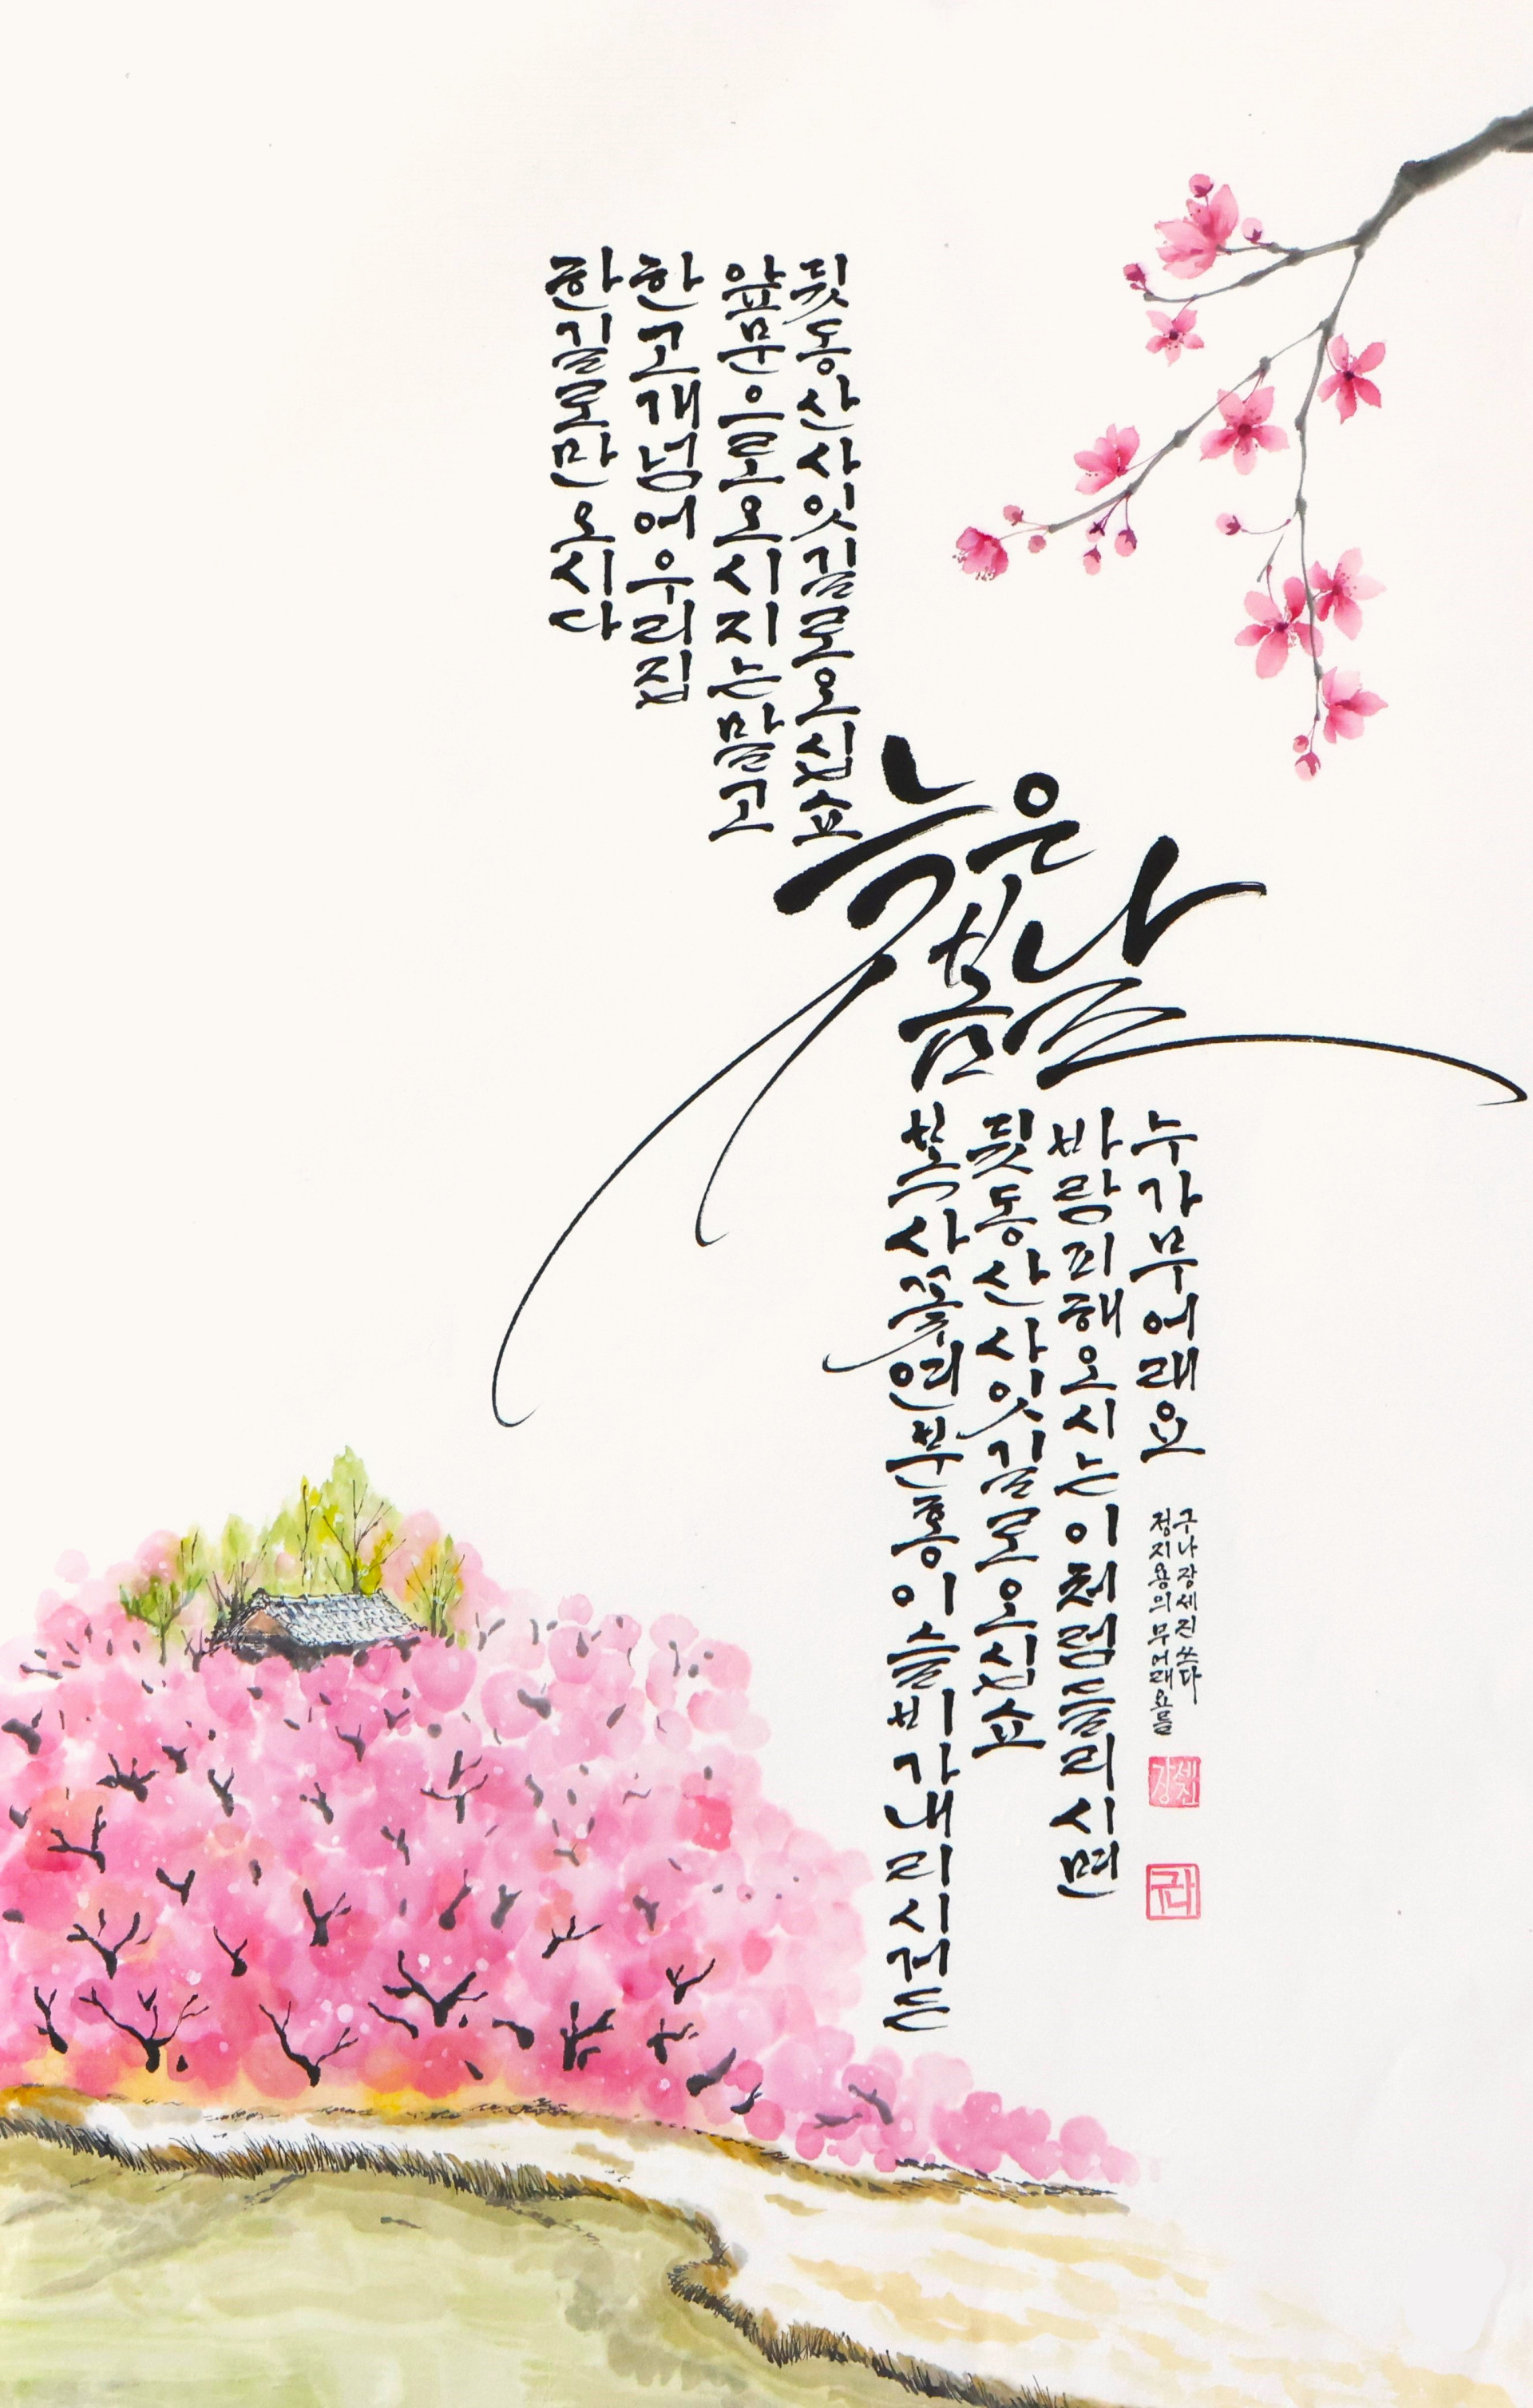 한길로만 오시다
한고개 넘어 우리집
앞문으로 오시지는 말고
뒷동산 사잇길로 오십쇼
늦은
봄날
복사꽃 연분홍 이슬비가 내리시거든
뒷동산 사잇길로 오십쇼
바람피해 오시는 이처럼 들리시면
누가 무어래요
정지용의 무어래요를
구나 장세진 쓰다
장세진
구나